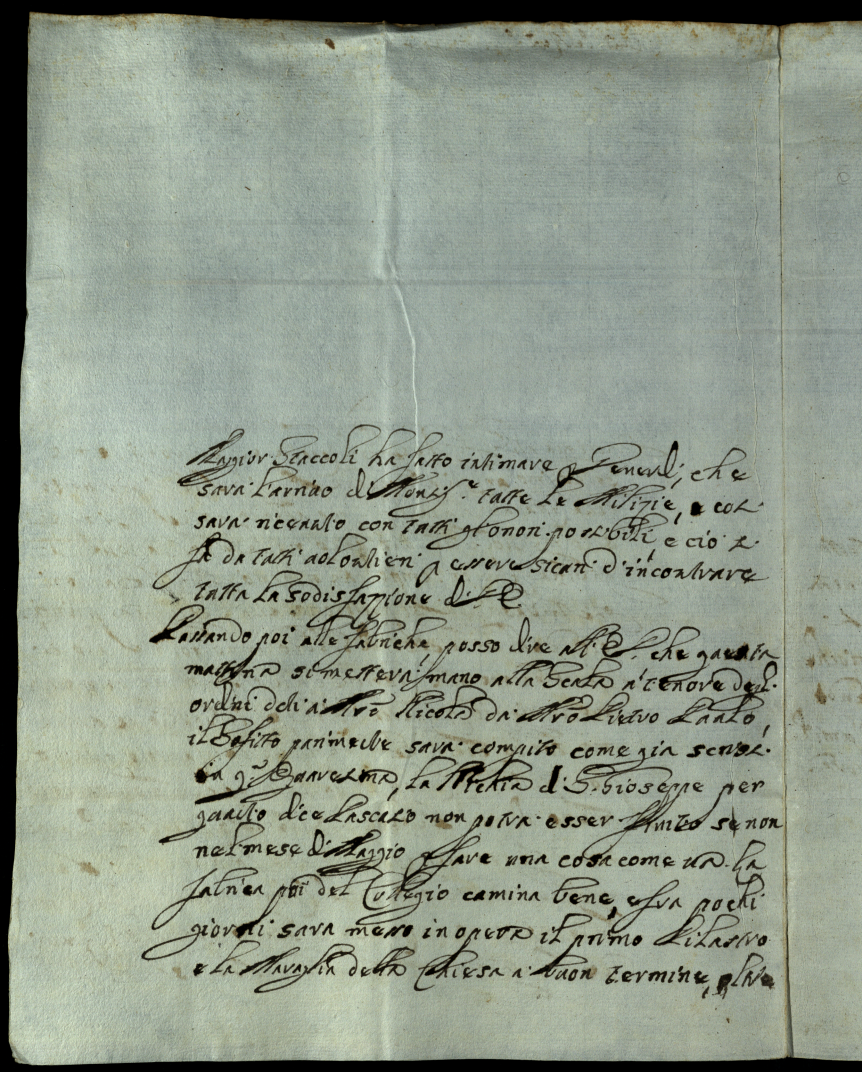 Maggior Staccoli ha fatto intimare p Venerdi, che
sara l'arriuo di Monsig.e tutte le Milizie, e cosi
sara riceuuto con tutti gl'honori possibili, e cio si
fà da tutti uolontieri p essere sicuri d'incontrare
tutta la sodisfazione di
Passando poi alle fabriche, posso dire all' che questa
mattina si mettera mano alla Scala a tenore degl'
ordini dati a Mrõ Nicola da Mrõ Pietro Paulo,
il Sofito parimente sara compito come gia scrissi
Quaresima, la di S. Gioseppe per
quanto dice Pascuccio non potra esser finito se non
nel mese di Maggio p fare una cosa come ua. La
fabrica poi del Collegio camina bene, e fra pochi
giorni sara messo in opera il primo Pilastro
e la Muraglia della Chiesa a buon termine,